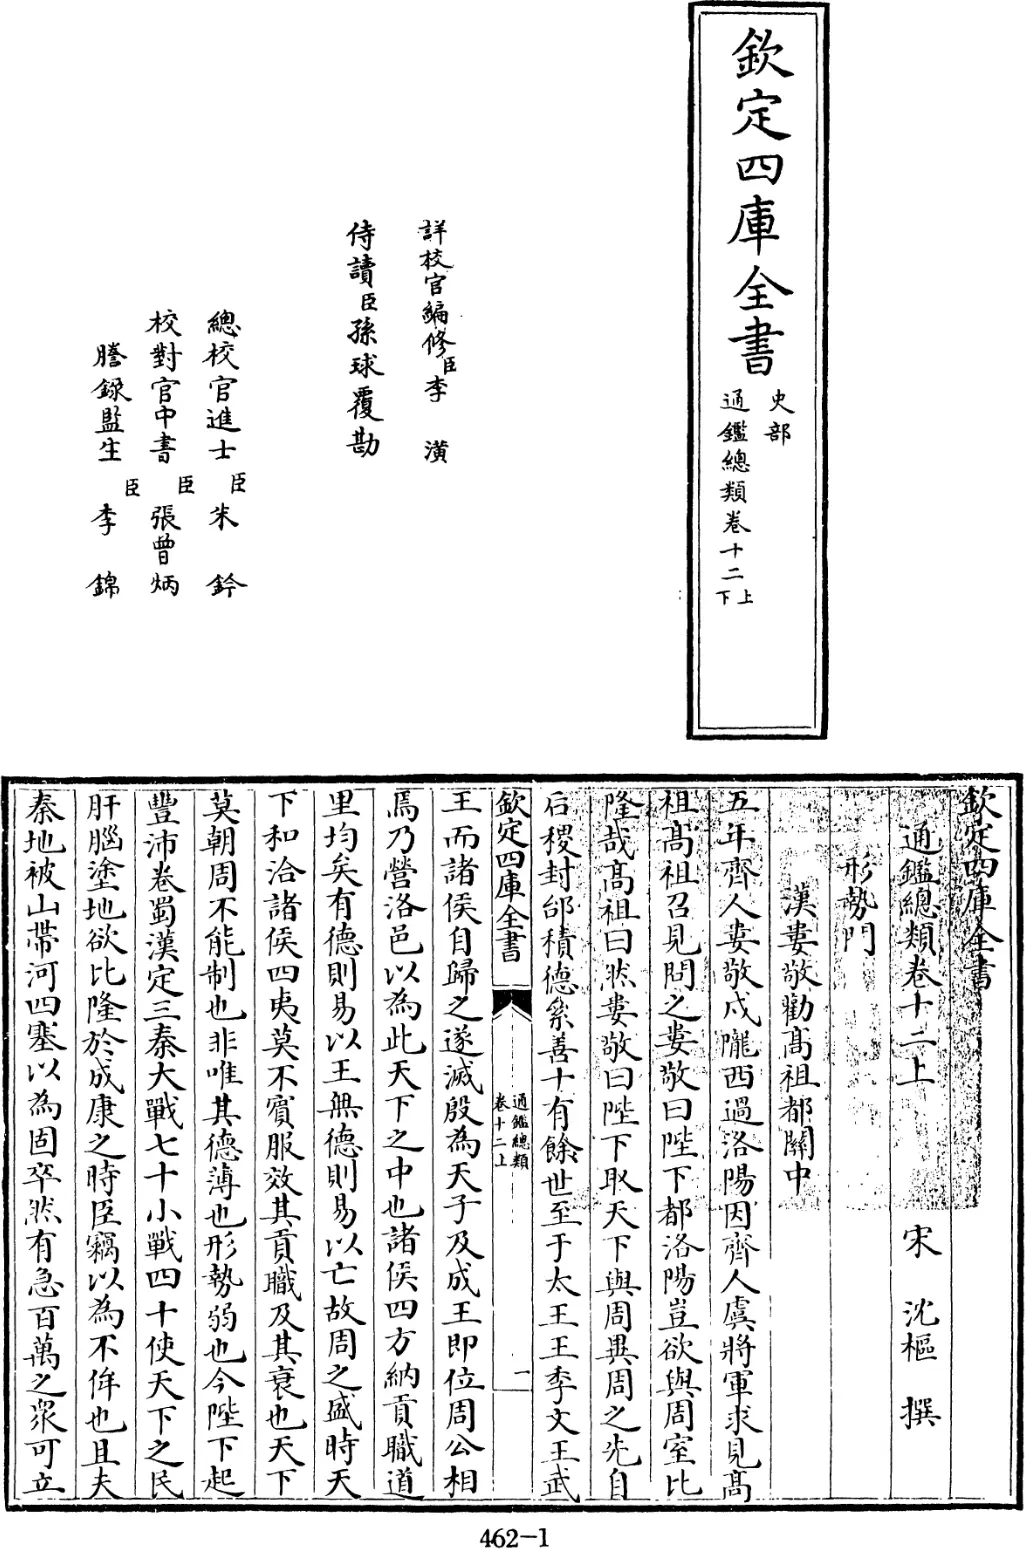 欽定四庫全書
史部
通鑑總類卷十二
上
下
詳校官編修臣李潢
侍讀臣孫球覆勘
總校官進士臣朱鈐
校對官中書臣張曾炳
謄録監生臣李錦
欽定四庫全書
通鑑總類卷十二上
宋 沈樞 撰
形勢門
漢婁敬勸髙祖都關中
五年齊人婁敬戍隴西過洛陽因齊人虞將軍求見髙
祖髙祖召見問之婁敬曰陛下都洛陽豈欲與周室比
隆哉髙祖曰然婁敬曰陛下取天下與周異周之先自
后稷封邰積德絫善十有餘世至于太王王季文王武
欽定四庫全書
通鑑總類
卷十二上
一
王而諸侯自歸之遂滅殷為天子及成王即位周公相
焉乃營洛邑以為此天下之中也諸侯四方納貢職道
里均矣有德則易以王無德則易以亡故周之盛時天
下和洽諸侯四夷莫不賓服效其貢職及其衰也天下
莫朝周不能制也非唯其德薄也形勢弱也今陛下起
豐沛卷蜀漢定三秦大戰七十小戰四十使天下之民
肝腦塗地欲比隆於成康之時臣竊以為不侔也且夫
秦地被山帶河四塞以為固卒然有急百萬之衆可立
462-1